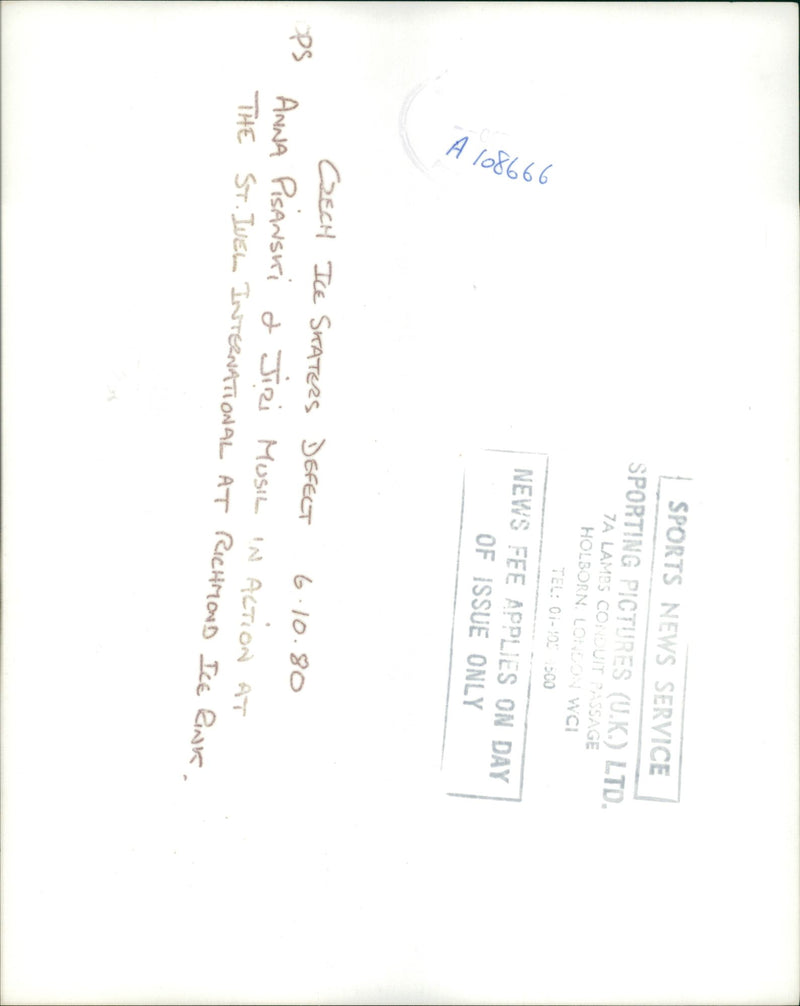 A 108666
CZECH ICE SKATERS DEFECT 6.10.80
OPS ANNA PISANSKI & JIRI MUSIL IN ACTION AT
THE ST. IVEL INTERNATIONAL AT RICHMOND ICE RINK.
SPORTS NEWS SERVICE
SPORTING PICTURES (U.K.) LTD.
7A LAMBS CONDUIT PASSAGE
HOLBORN, LONDON WC1
TEL: 01-
NEWS FEE APPLIES ON DAY
OF ISSUE ONLY